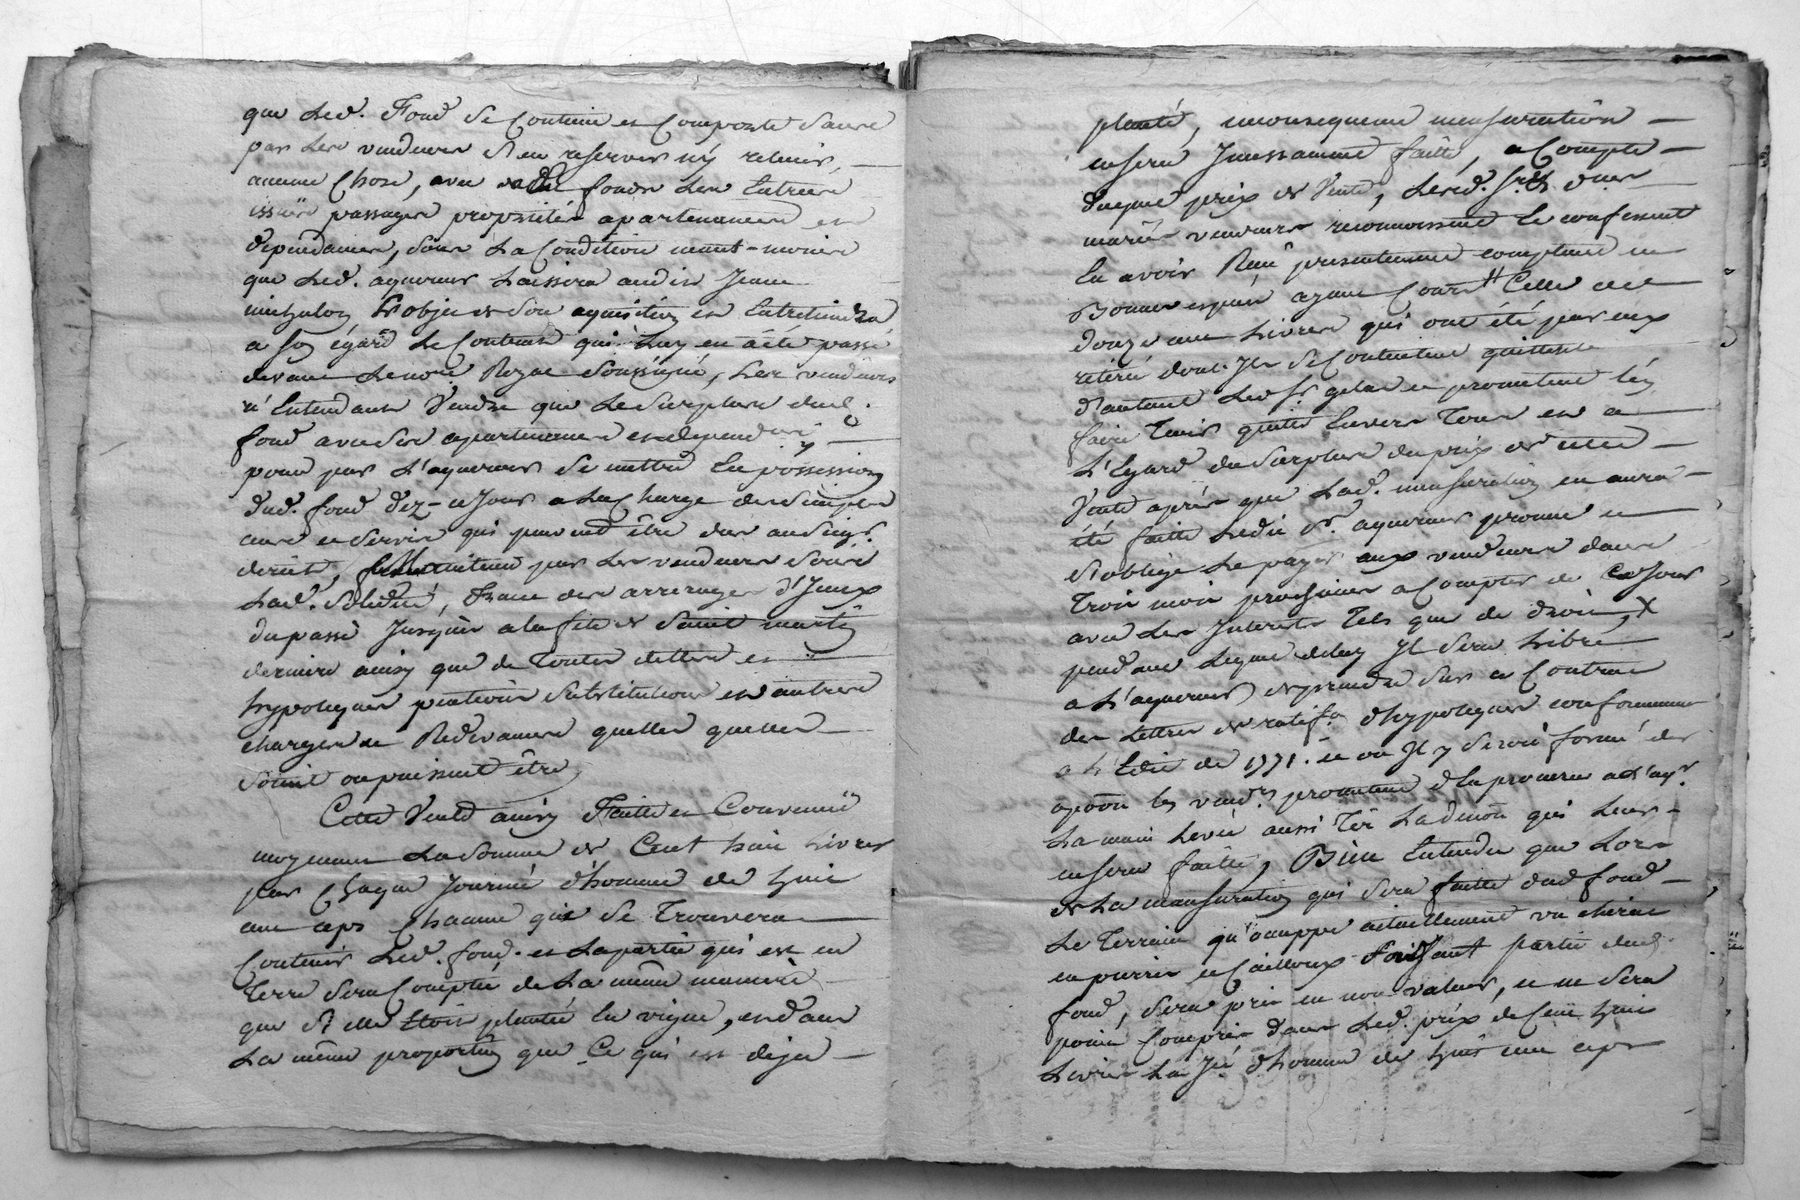 que led. Fond se Contient et Comporte sans
par les vendeurs s'en reserver n'y retenir
aucune Chose, avec dud. fonds ses Entrées
issües passages proprietés apartenances et
dependances, sous la Condition neant-moins
que led. aquereur Laissera audit Jean
L'objet de son aquisition et Entretiendra
a son égard le Contrat qui luy en a été passé
devant Lenore Royal soussigné, les vendeurs
n'Entendants Vendre que le surplus dud.
fond avec ses apartenances et dependances
pour par L'aquereur se mettre En possession
dud. fond d'ez-ce Jour a la Charge des simples
cens et servis qui peuvent être dus au seigr.
direct, par les vendeurs sous
lad. solidité, franc des arrerages d'Iceux
du passé Jusques a la fête de Saint martin
derniere ainsy que de Toutes dettes et
hypoteques pentions substitutions et autres
charges et Redevances quelles quelles
soient ou puissent être,
Cette Vente ainsy Faitte et Convenüe
moyennant La somme de Cent huit Livres
par Chaque Journée d'homme de huit
cent ceps Chacune qui se Trouvera
Contenir led. fond. et la partie qui est en
Terre sera Comptée de La même maniere
que si elle Etoit plantée En vigne, et dans
La même proportion que Ce qui est deja
planté, inconsequence mensuration
en sera Incessamment faitte, a Compte
duquel prix de Vente, Lesd. srs.
mariés vendeurs reconnoissent et confessent
En avoir Reçu presentement comptant en
Bonnes especes ayant Cours Celle de
douze cent Livres qui ont été par eux
retirée dont Ils se Contentent quittent
d'autant led. sr. et promettent l'en
faire Tenir quitte Envers Tous et a
L'Egard du surplus du prix de cette
Vente après que Lad. mensuration en aura
été faitte Ledit sr. aquereur promet et
s'oblige le payer aux vendeurs dans
Trois mois prochains a Compter de Ce Jour
avec Les Interets Tels que de droit, X
pendant Lequel delay Il sera Libre
a L'aquereur de prendre sur ce Contrat
des Lettres de ratif.on d'hypoteques conformement
a L'Edit de 1771. et ou Il y seroit formé des
opõõn les vend.rs promettent d'En procurer a L'aqr.
La main Levée aussi Tôt La dmõn qui Leur
en sera faitte, Bien Entendu que Lors
de La mensuration qui sera faitte dud. fond
Le Terrain qu'occuppe actuellement un chirat
en pierres et Cailloux Faisant partie dud.
fond, sera pris en non valeur, et ne sera
point Compris dans Led. prix de Cent huit
Livres La Jée d'homme de huit cent ceps